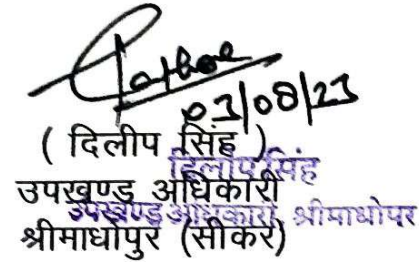 03/08/23
( दिलीप सिंह )
दिलीप सिंह
उपखण्ड अधिकारी
उपखण्ड अधिकारी, श्रीमाधोपुर
श्रीमाधोपुर (सीकर)